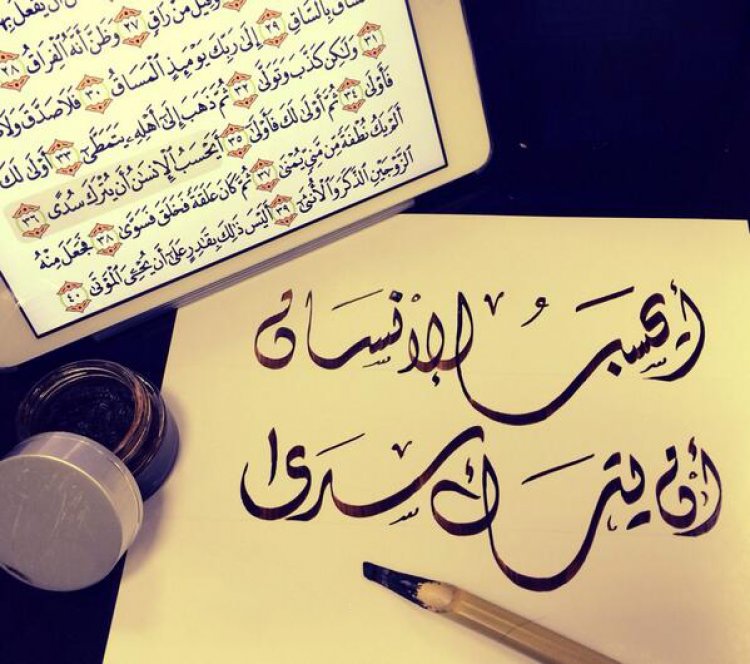 أَن يُفْعَلَ
وَقِيلَ مَنْ رَاقٍ ٢٧ وَظَنَّ أَنَّهُ الْفِرَاقُ ٢٨
بِالسَّاقِ ٢٩ إِلَىٰ رَبِّكَ يَوْمَئِذٍ الْمَسَاقُ ٣٠ فَلَا صَدَّقَ وَلَا
٣١ وَلَٰكِن كَذَّبَ وَتَوَلَّىٰ ٣٢ ثُمَّ ذَهَبَ إِلَىٰ أَهْلِهِ يَتَمَطَّىٰ ٣٣ أَوْلَىٰ لَكَ
فَأَوْلَىٰ ٣٤ ثُمَّ أَوْلَىٰ لَكَ فَأَوْلَىٰ ٣٥ أَيَحْسَبُ الْإِنسَٰنُ أَن يُتْرَكَ سُدًى ٣٦
أَلَمْ يَكُ نُطْفَةً مِّن مَّنِيٍّ يُمْنَىٰ ٣٧ ثُمَّ كَانَ عَلَقَةً فَخَلَقَ فَسَوَّىٰ ٣٨ فَجَعَلَ مِنْهُ
الزَّوْجَيْنِ الذَّكَرَ وَالْأُنثَىٰ ٣٩ أَلَيْسَ ذَٰلِكَ بِقَٰدِرٍ عَلَىٰ أَن يُحْۦِيَ الْمَوْتَىٰ ٤٠
أيحسبُ الإنسان
أن يترك سدىً